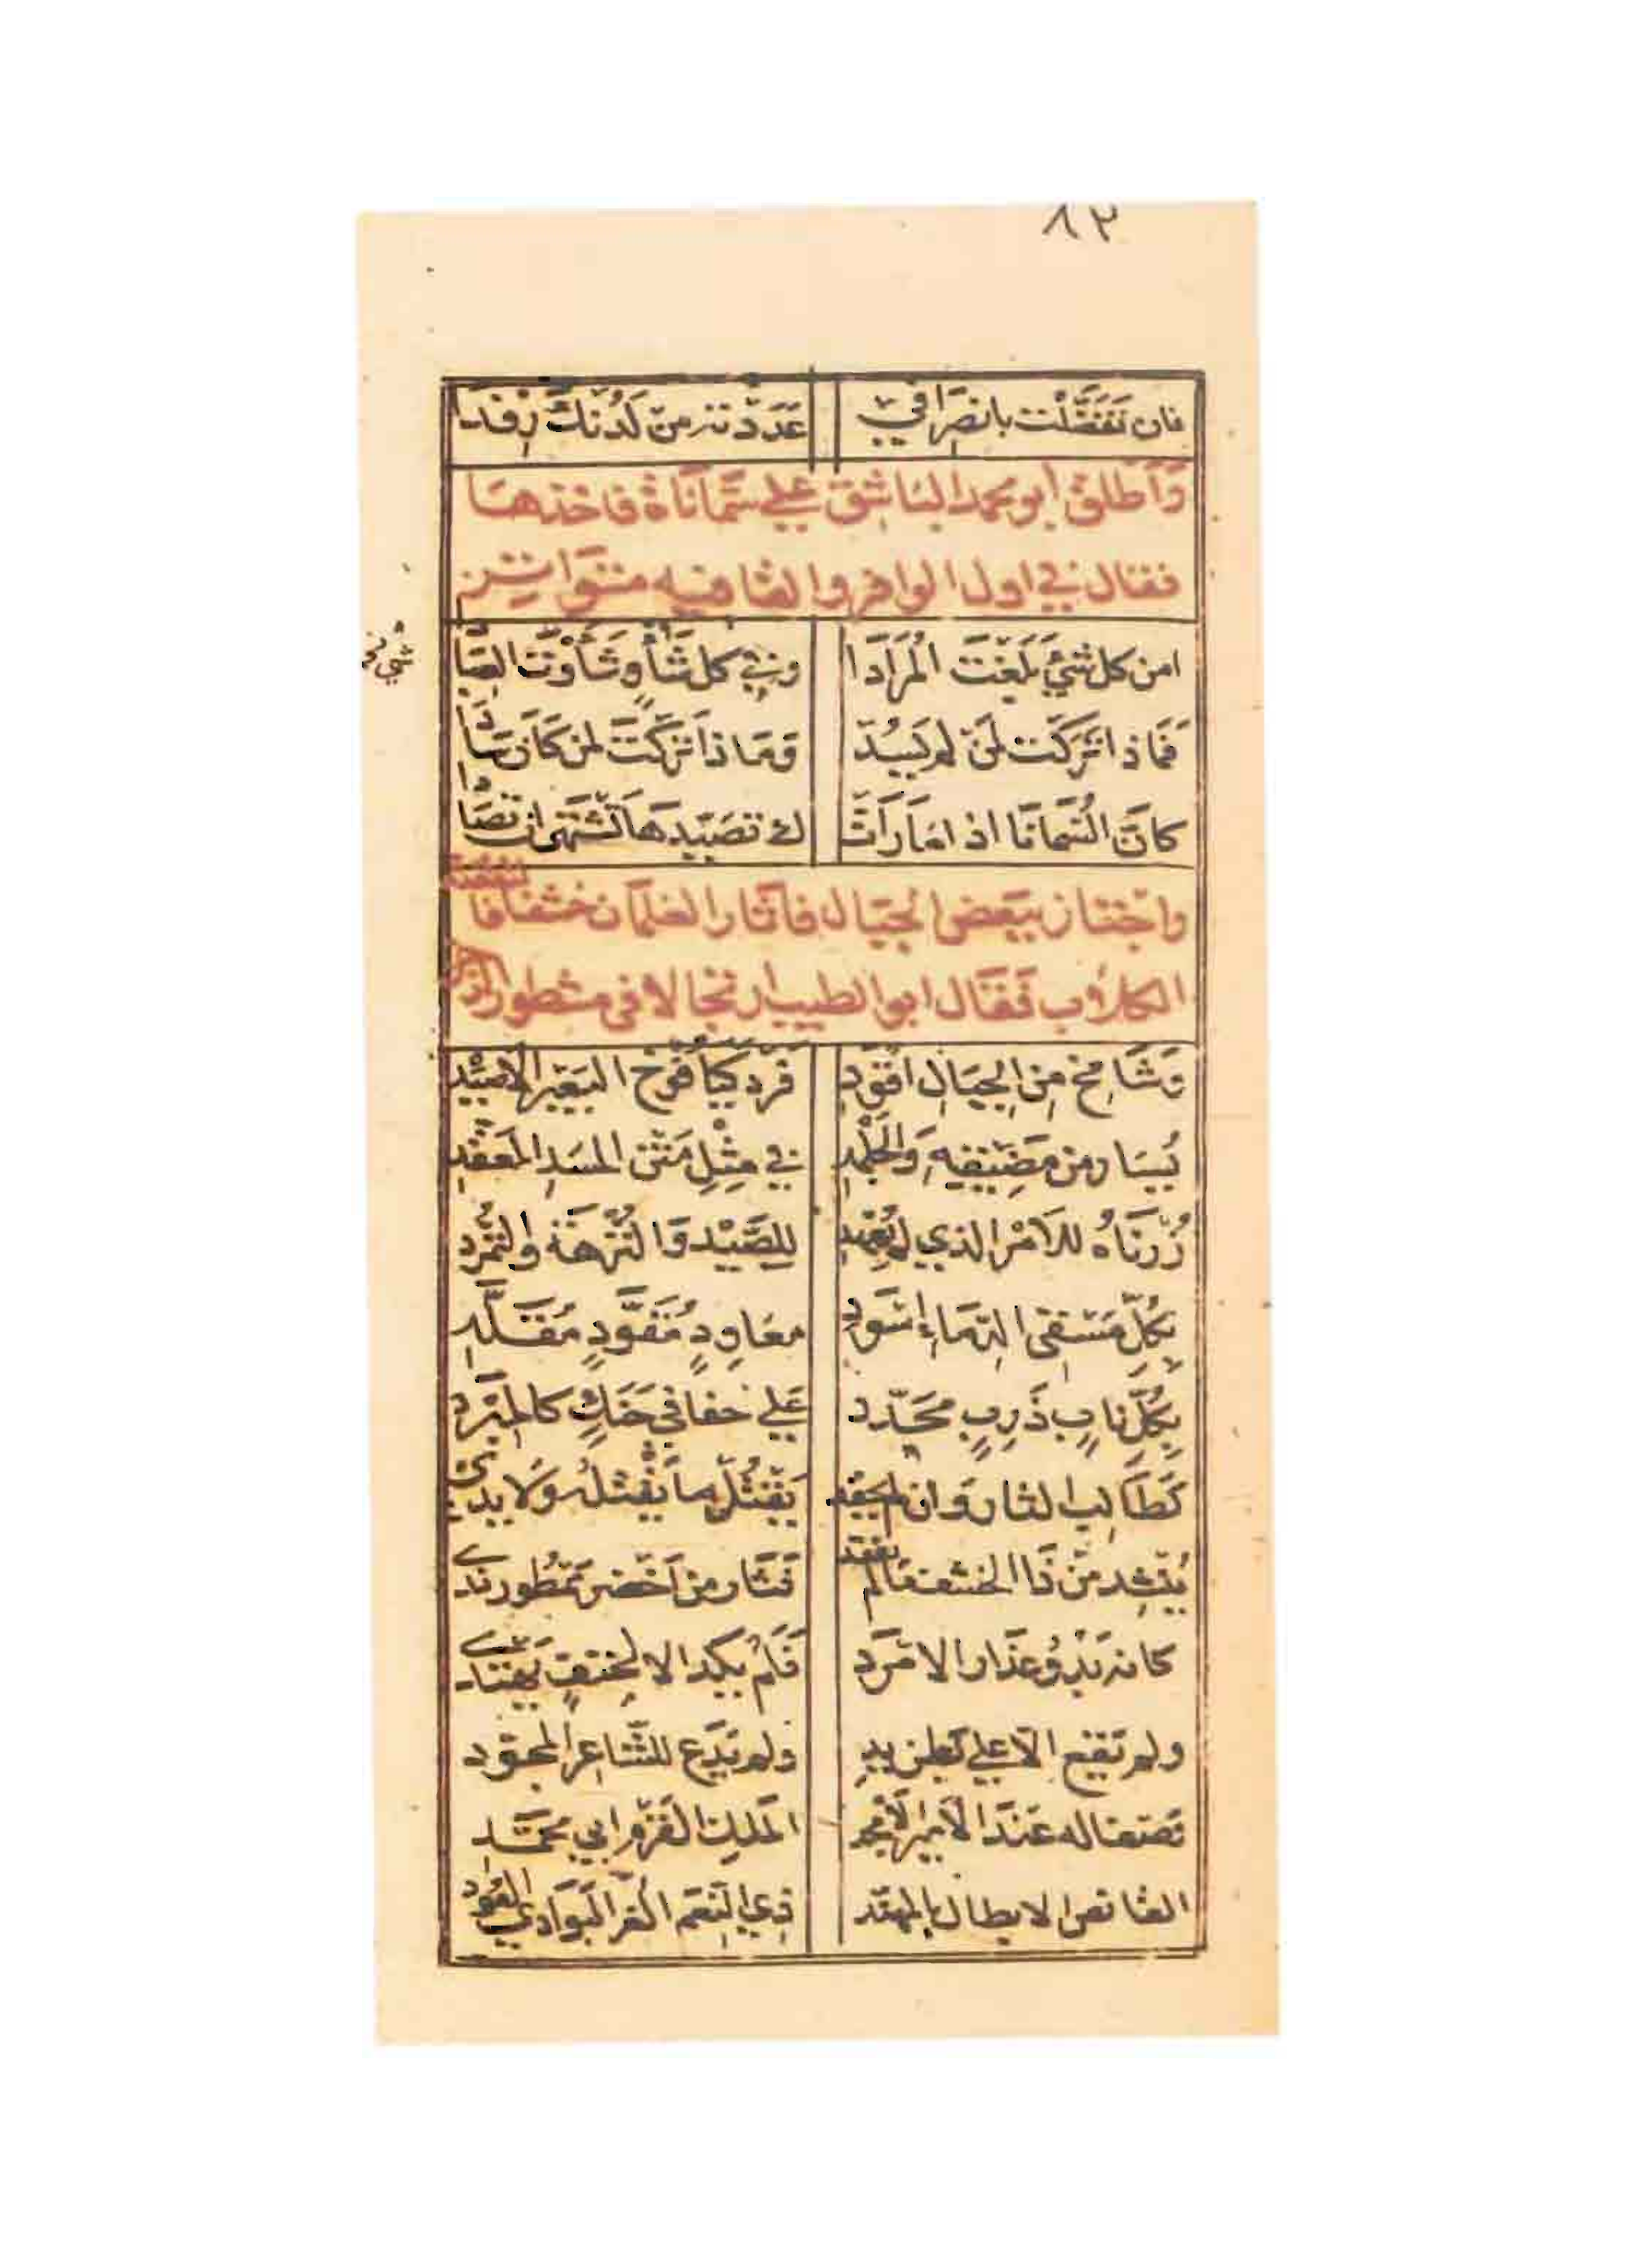 ٨٣
فان تَفَضَّلْت بانصِرَافي عَدَدْته من لَدُنْكَ رِفدا
وَاَطلق ابو محمد الباشق علي سُمَّاناة فاخذها
فقال في اول الوافر والقافيه متواتر
امن كل شيءٍ بَلَغْتَ المُرَادَا وفي كل شَأوٍ شَأَوْتَ العِبَادَا
فَمَاذا تَرَكْتَ لمَنْ لم يَسُدْ وَمَاذا تَرَكْتَ لمن كَانَ سَادَا
كانَّ السُّمَانَا اذا مَا رَأَتْكَ تصَيَّدهَا تَشْتَهِى ان تصَادَا
واجتاز ببعض الجبال فاثار الغلمان خشفا فالتقفته
الكلاب فقال ابو الطيب ارتجالا في مشطور الرجز
وَشَامِخٍ مِن الجِبَالِ اقْوَدِ فَرْدٍ كيأفُوخ البَعِيْرِ الاصْيَدِ
يُسَار من مَضِيْقِهِ وَالجَلْمَدِ في مِثْلِ مَتْنِ المسَدِ المعَقّدِ
زُرْنَاهُ للاَمْرِ الذي لم يُعْهَدِ لِلصَّيْدِ وَالنُّزْهَةِ والتَّمَرُّدِ
بكُلِّ مَسْقى الدِّمَاءِ اسْوَدِ معَاوِدٍ مُقَوَّدٍ مُقَلَّدِ
بِكُلِّ نابٍ ذَرِبٍ محَدَّد عَلي حفافي حَنَكٍ كالمِبْرَدِ
كَطَالِبِ الثار وَان لم يحقد يَقْتُلُ ما يَقْتلُه وَلا يدى
يُنْشِد من ذَا الخشف مَا لم يفقد فَثَار من اَخْضَر ممْطُورٍ ندى
كانه بَدْوُ عِذَار الامْرَدِ فَلَمْ يكد الا لحتفٍ يهتدى
ولم يَقع الا علي بَطن يدِ ولم يَدَعْ للشَّاعِر المجوّد
وَصْفا له عندَ الاَمِيْرِ الاَمْجَدِ المَلِكِ القَرْمِ ابي محمَّد
القانص الابطال بالمهنّد ذي النِّعَم الغُرّ البَوَادي العُوَّد